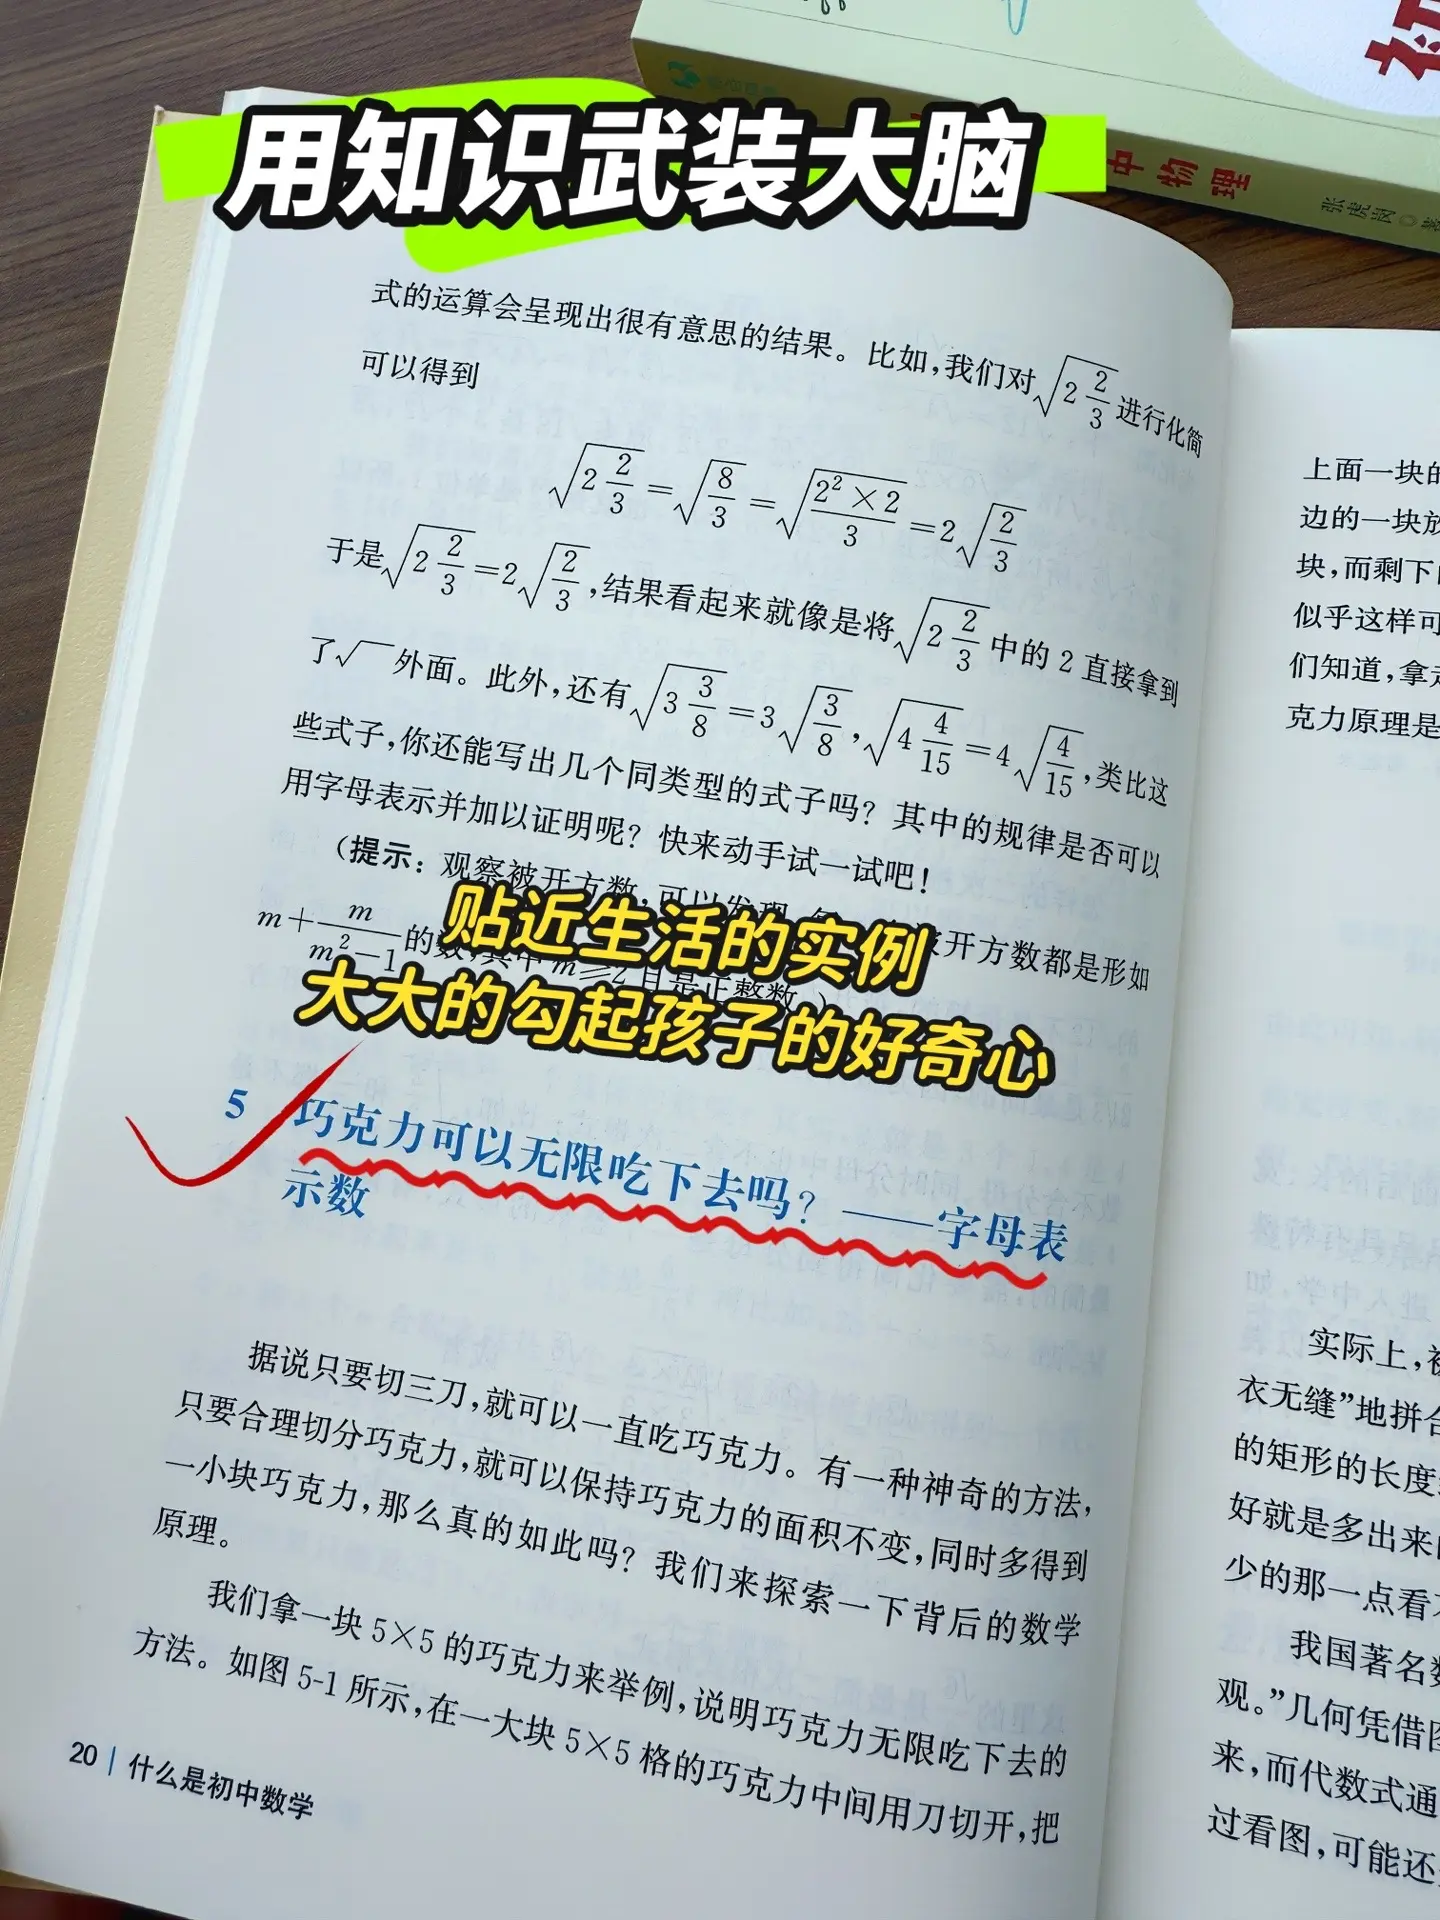 用知识武装大脑
初
中物理
张虎岗◎著
式的运算会呈现出很有意思的结果。比如,我们对√(2 2/3)进行化简
可以得到
√(2 2/3)=√(8/3)=√((2²×2)/3)=2√(2/3)
于是√(2 2/3)=2√(2/3),结果看起来就像是将√(2 2/3)中的2直接拿到
了√外面。此外,还有√(3 3/8)=3√(3/8),√(4 4/15)=4√(4/15),类比这
些式子,你还能写出几个同类型的式子吗?其中的规律是否可以
用字母表示并加以证明呢?快来动手试一试吧!
(提示:观察被开方数,可以发现 开方数都是形如
m+m/(m²-1)的数,其中m≥2且是正整数。)
贴近生活的实例
大大的勾起孩子的好奇心
5 巧克力可以无限吃下去吗?——字母表
示数
据说只要切三刀,就可以一直吃巧克力。有一种神奇的方法,
只要合理切分巧克力,就可以保持巧克力的面积不变,同时多得到
一小块巧克力,那么真的如此吗?我们来探索一下背后的数学
原理。
我们拿一块5×5的巧克力来举例,说明巧克力无限吃下去的
方法。如图5-1所示,在一大块5×5格的巧克力中间用刀切开,把
20 | 什么是初中数学
上面一块的
边的一块放
块,而剩下
似乎这样可
们知道,拿走
克力原理是
实际上,被
衣无缝”地拼合
的矩形的长度
好就是多出来
少的那一点看
我国著名数
观。”几何凭借图
来,而代数式通
过看图,可能还